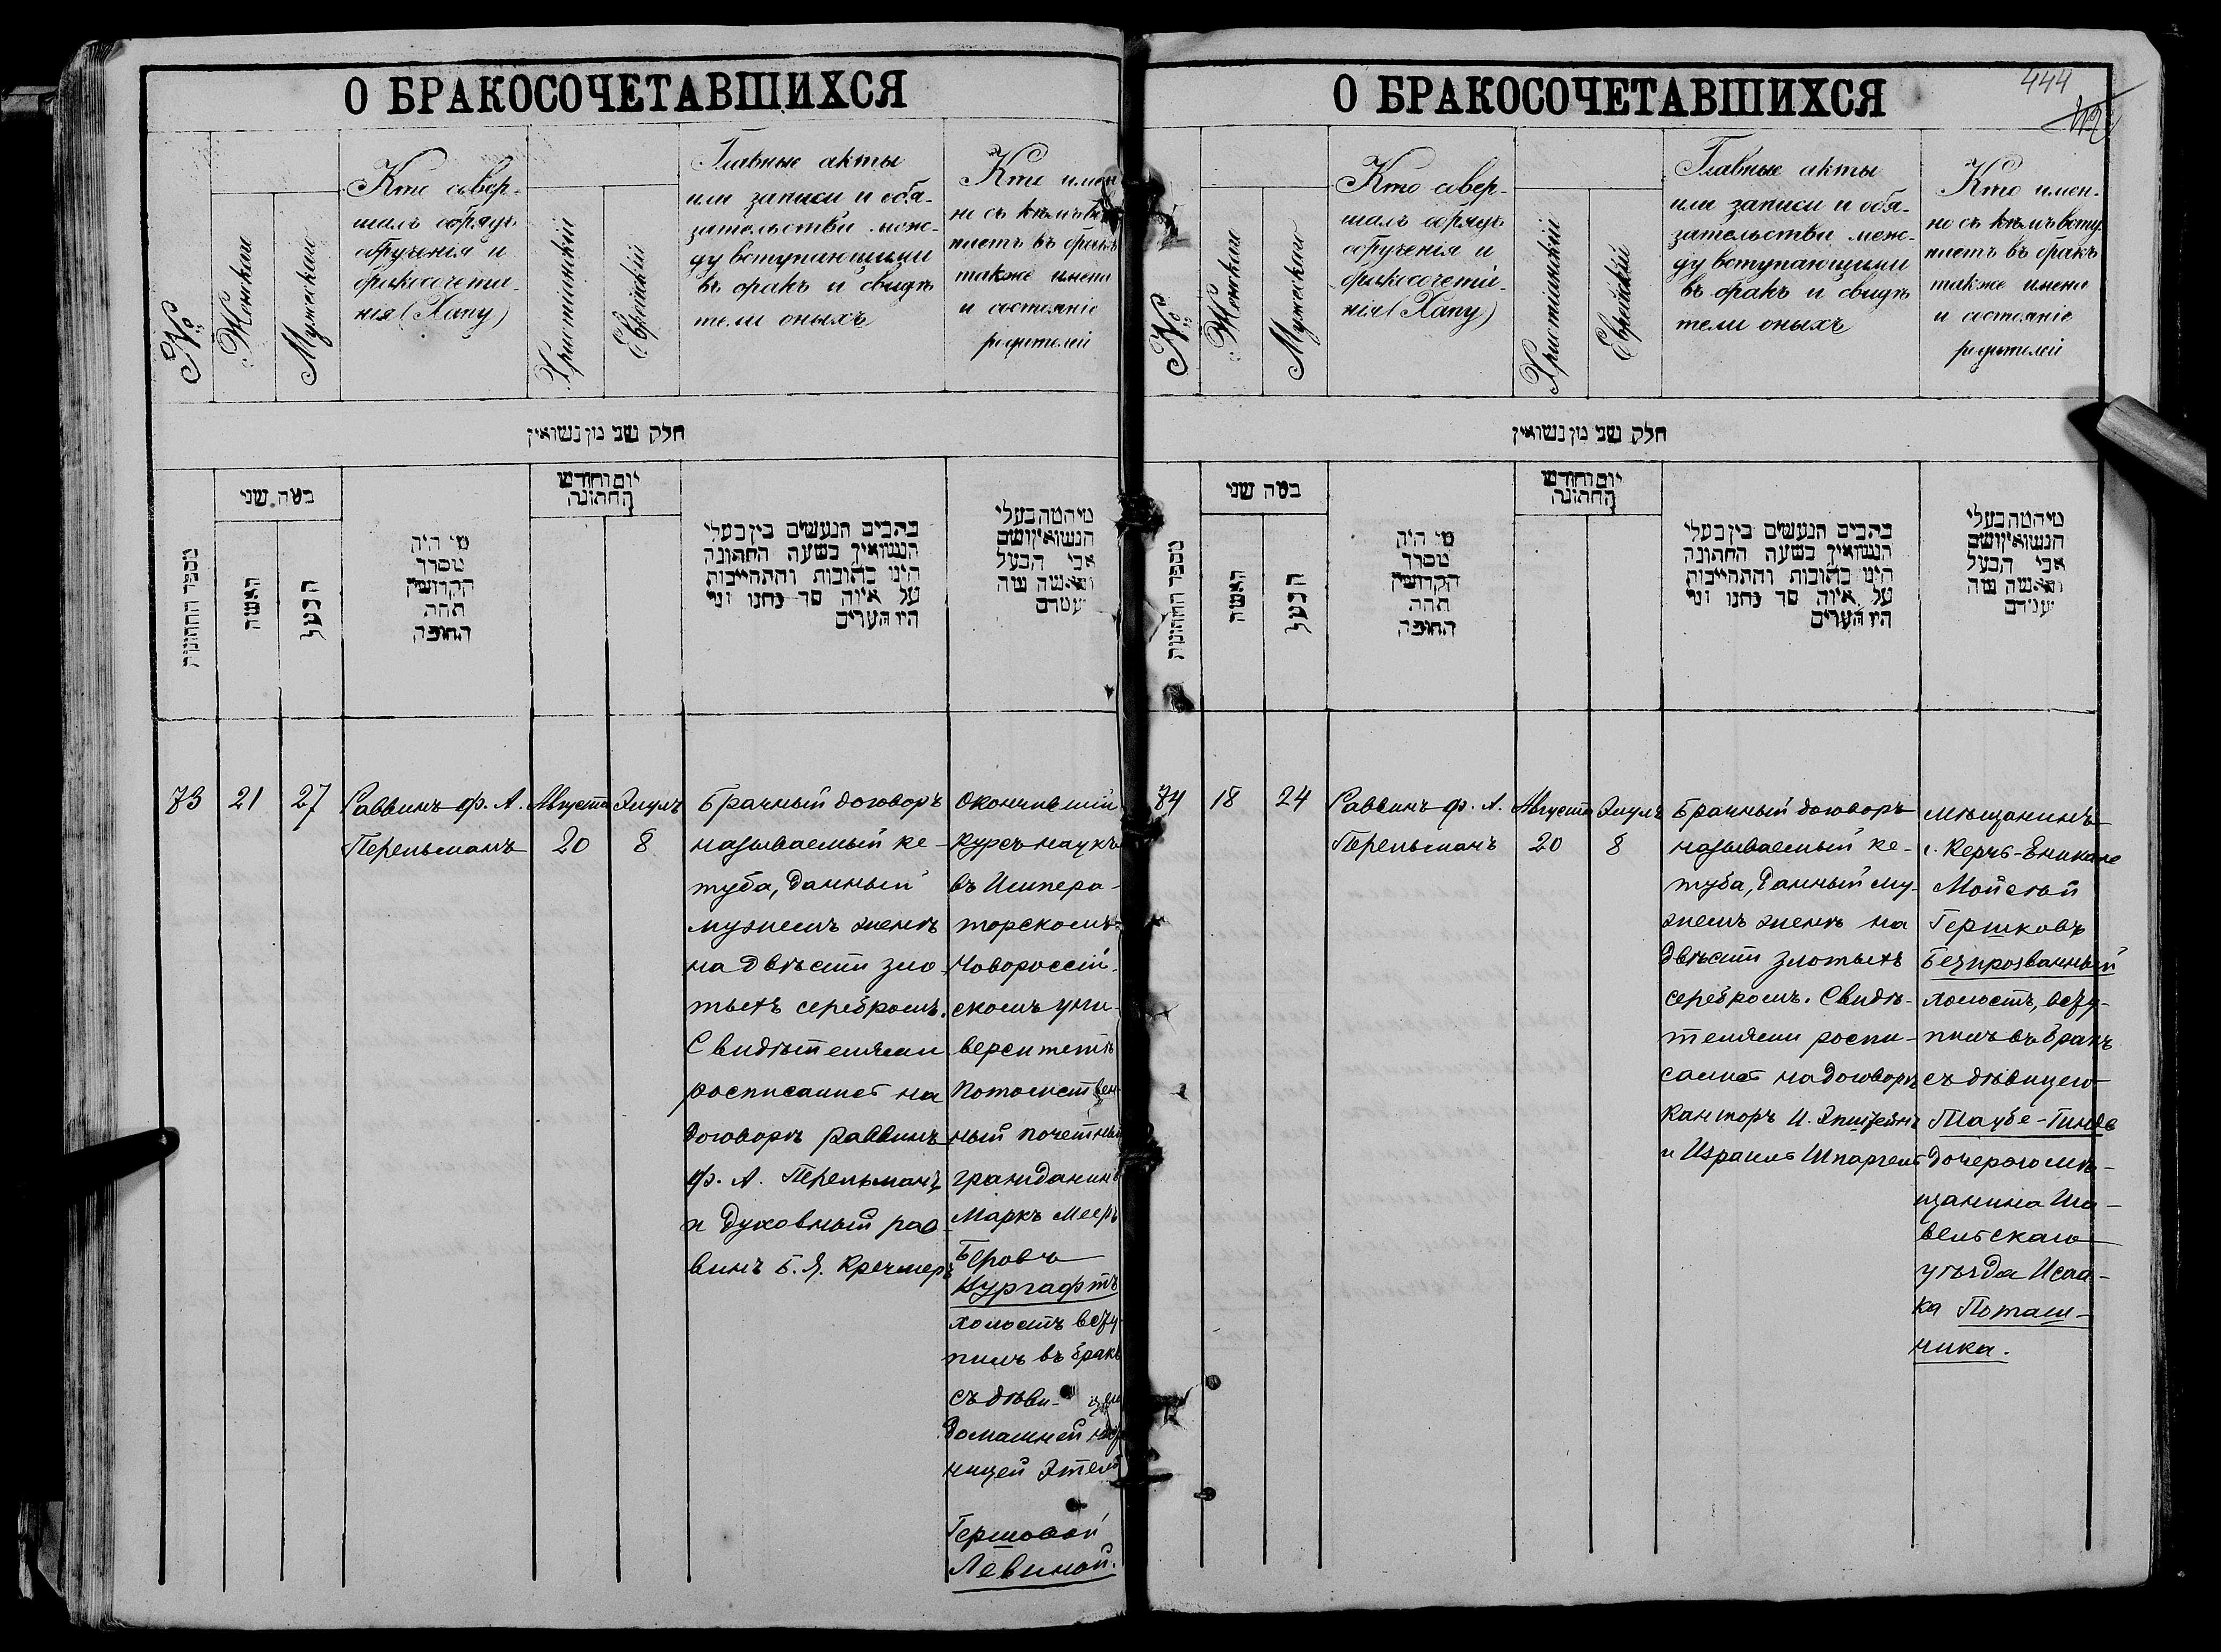 О БРАКОСОЧЕТАВШИХСЯ
№
Женскаго
Мужескаго
Кто совер-
шалъ обрядъ
обрученія и
бракосочета-
нія (Хапу)
Христіанскій
Еврейскій
Главные акты
или записи и обя-
зательства меж-
ду вступающими
въ бракъ и свидѣ
тели оныхъ
Кто имен
но съ кѣмъ
паетъ въ бракъ
также имена
и состояніе
родителей
חלק שני מן נשואין
מספר החתונות
כמה שני
האשה
הבעל
מי היה
מסדר
הקדושין
תחת
החופה
יום וחודש
החתונה
כתבים הנעשים בין בעלי
הנשואין בשעה החתונה
היינו כתובות והתחייבות
על איזה סך נתנו ומי
היו העדים
מי המה בעלי
הנשואין ושם
אבי הבעל
והאשה מה
73
21
27
Раввинъ ф. А.
Перельманъ
Августа
20
Элулъ
8
Брачный договоръ
называемый ке-
туба, данный
мужемъ женѣ
на двѣсти зло-
тыхъ серебромъ.
Свидѣтелями
росписались на
договорѣ раввинъ
ф. А. Перельманъ
и духовный рав-
винъ Б. Я. Кречмеръ
Окончившій
курсъ наукъ
въ Импера-
торскомъ
Новороссій-
скомъ уни-
верситетѣ
Потомствен-
ный почетный
гражданинъ
Маркъ Мееръ
Беровъ
Цургафтъ
холостъ всту-
пилъ въ бракъ
съ дѣви- цею
домашней
ницей Этель
Гершовой
Левиной.
О БРАКОСОЧЕТАВШИХСЯ
444
№
Женскаго
Мужескаго
Кто совер-
шалъ обрядъ
обрученія и
бракосочета-
нія (Хапу)
Христіанскій
Еврейскій
Главные акты
или записи и обя-
зательства меж-
ду вступающими
въ бракъ и свидѣ
тели оныхъ
Кто имен-
но съ кѣмъ всту
паетъ въ бракъ
также имена
и состояніе
родителей
חלק שני מן נשואין
מספר החתונות
כמה שני
האשה
הבעל
מי היה
מסדר
הקדושין
תחת
החופה
יום וחודש
החתונה
כתבים הנעשים בין בעלי
הנשואין בשעה החתונה
היינו כתובות והתחייבות
על איזה סך נתנו ומי
היו העדים
מי המה בעלי
הנשואין ושם
אבי הבעל
והאשה מה
74
18
24
Раввинъ ф. А.
Перельманъ
Августа
20
Элулъ
8
Брачный договоръ
называемый ке-
туба, данный му-
жемъ женѣ на
двѣсти злотыхъ
серебромъ. Свидѣ-
телями роспи-
сались на договорѣ
канторъ И. Эпштейнъ
и Израиль Шпаргель
мѣщанинъ
г. Керчь-Еникале
Мойсей
Гершковъ
Безпрозванный
холостъ, всту-
пилъ въ бракъ
съ дѣвицею
Таубе-Гинде
дочерью мѣ-
щанина Ша-
вельскаго
уѣзда Исаа-
ка Поташ-
ника.